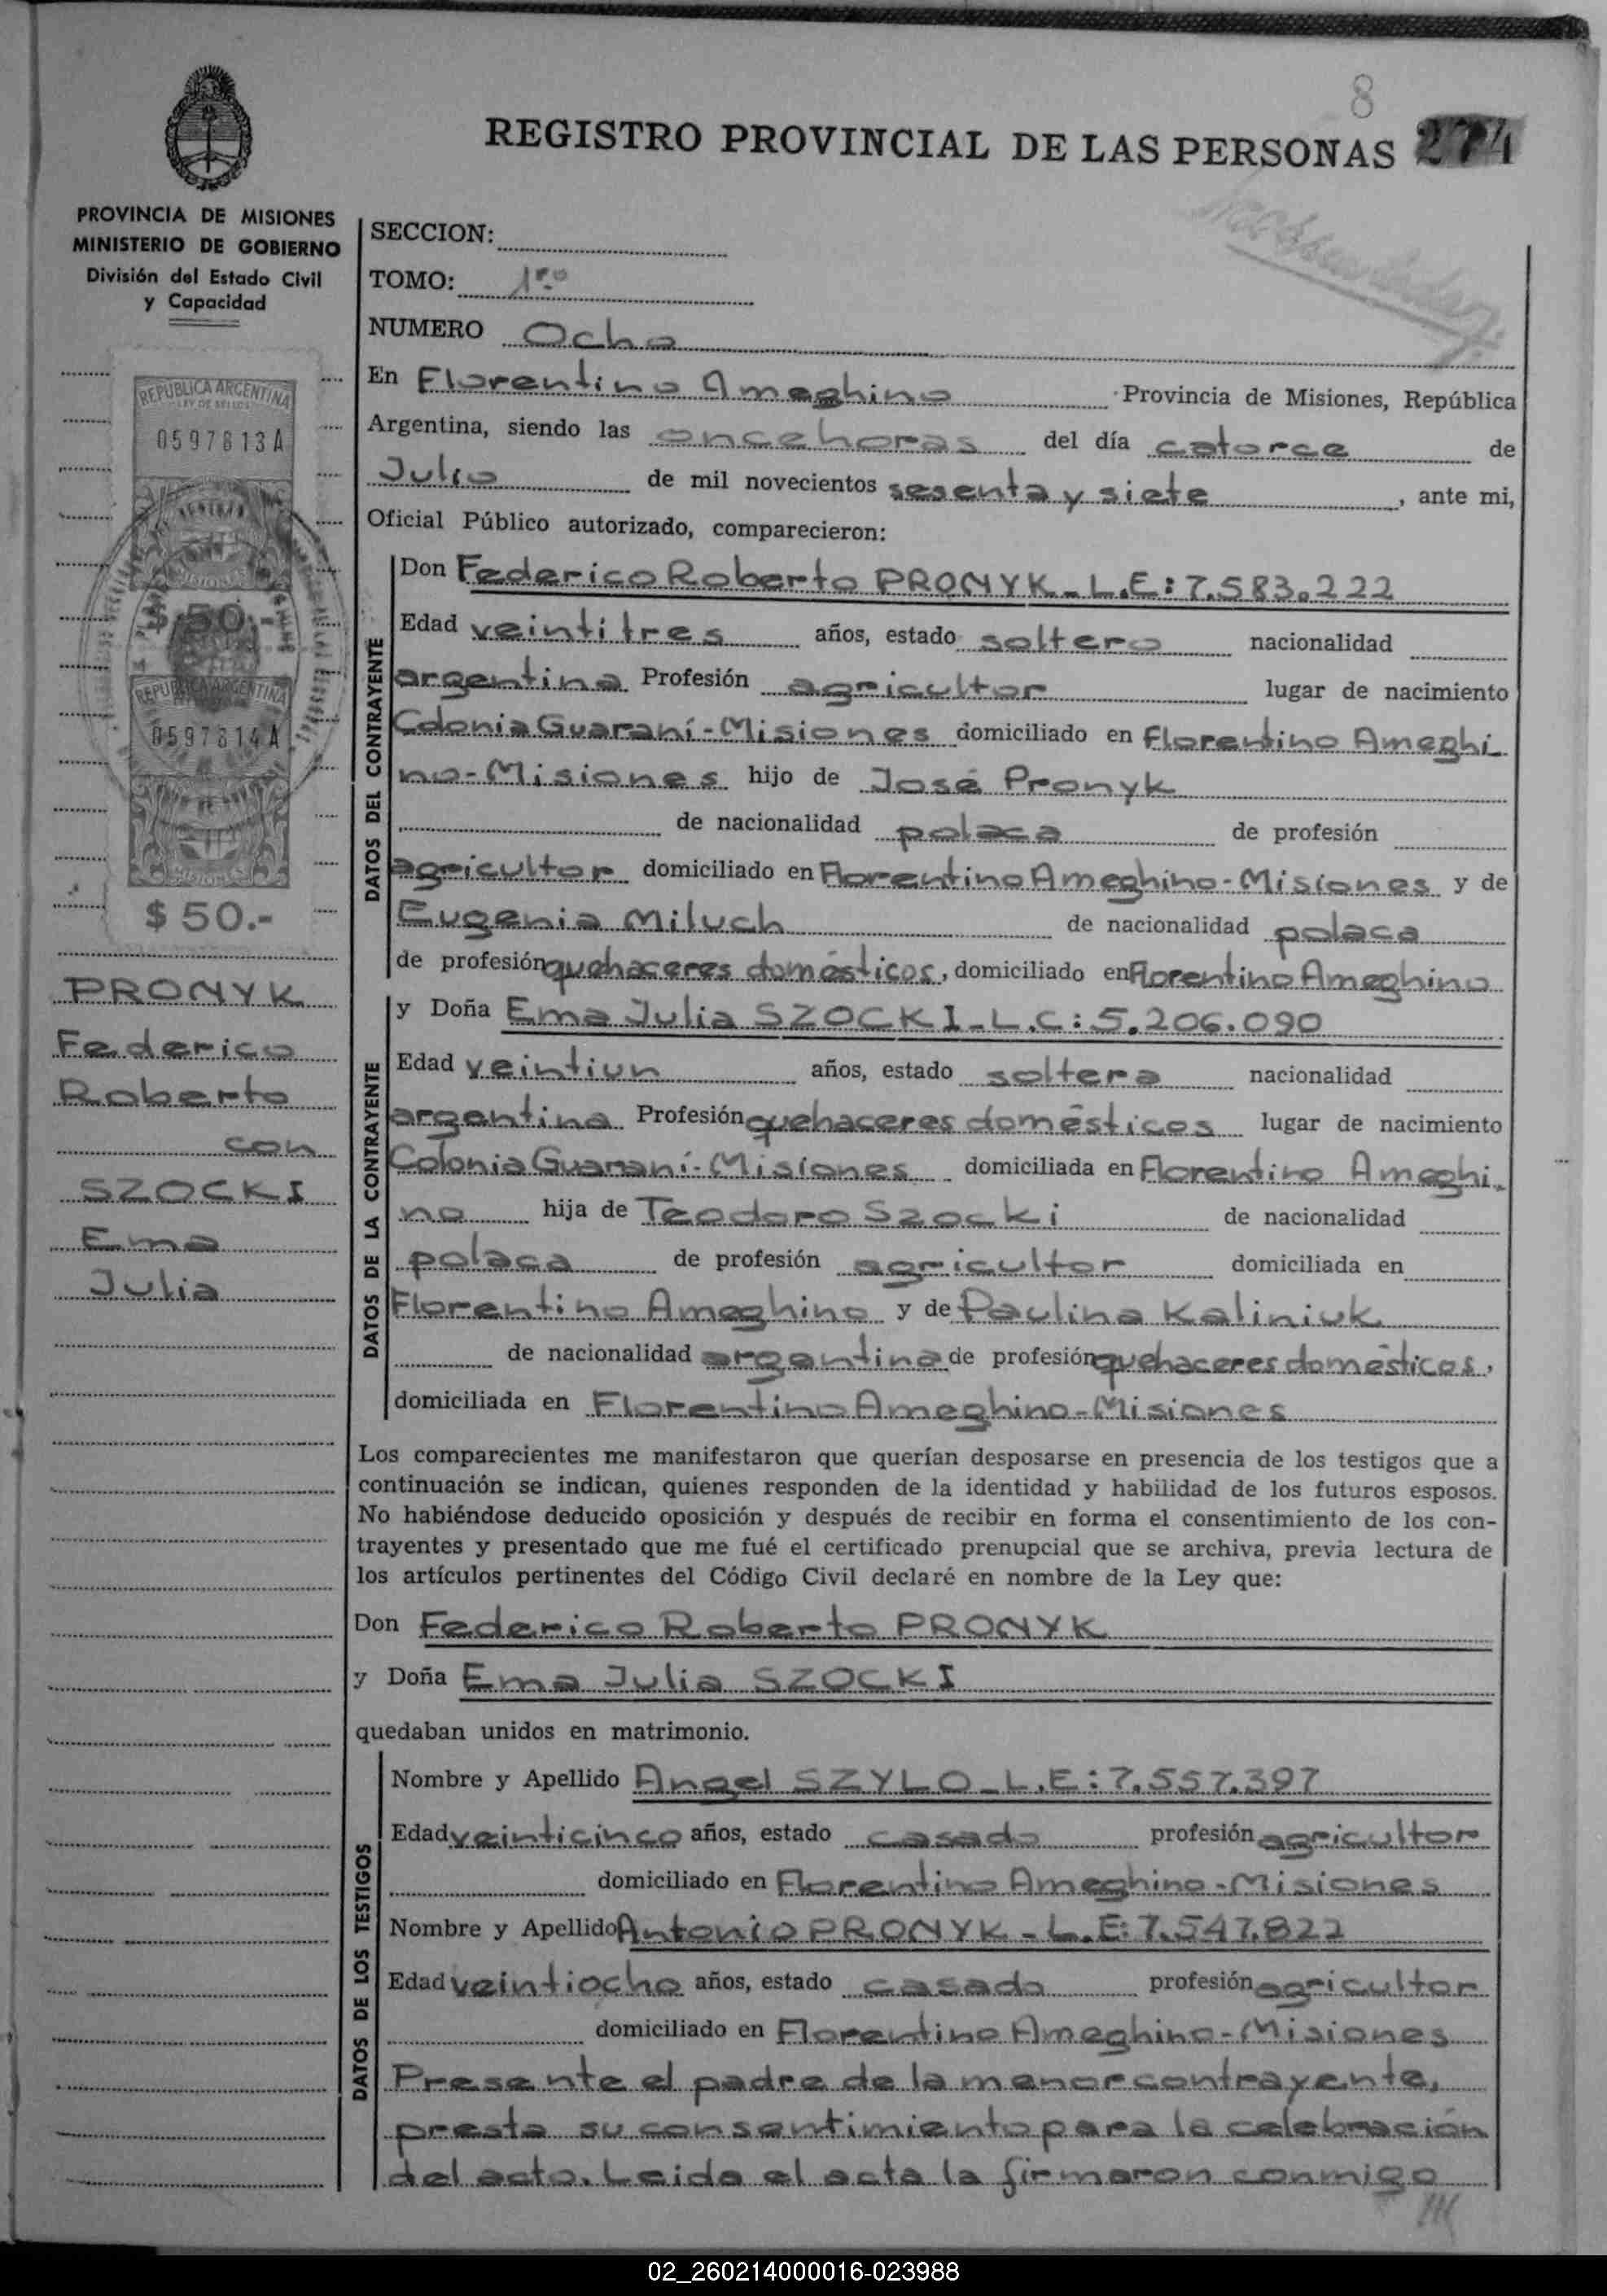 8
REGISTRO PROVINCIAL DE LAS PERSONAS 274
PROVINCIA DE MISIONES
MINISTERIO DE GOBIERNO
División del Estado Civil
y Capacidad
REPUBLICA ARGENTINA
LEY DE SELLOS
0597813A
MISIONES
$ 50.-
REPUBLICA ARGENTINA
0597814A
MISIONES
$ 50.-
PRONYK
Federico
Roberto
con
SZOCKI
Ema
Julia
SECCION:
TOMO: 1ro
NUMERO Ocho
En Florentino Ameghino Provincia de Misiones, República
Argentina, siendo las once horas del día catorce de
Julio de mil novecientos sesenta y siete, ante mi,
Oficial Público autorizado, comparecieron:
DATOS DEL CONTRAYENTE
Don Federico Roberto PRONYK - L.E: 7.583.222
Edad veintitres años, estado soltero nacionalidad
argentina Profesión agricultor lugar de nacimiento
Colonia Guaraní - Misiones domiciliado en Florentino Ameghi
no - Misiones hijo de José Pronyk
de nacionalidad polaca de profesión
agricultor domiciliado en Florentino Ameghino - Misiones y de
Eugenia Miluch de nacionalidad polaca
de profesión quehaceres domésticos, domiciliado en Florentino Ameghino
DATOS DE LA CONTRAYENTE
y Doña Ema Julia SZOCKI - L.C: 5.206.090
Edad veintiun años, estado soltera nacionalidad
argentina Profesión quehaceres domésticos lugar de nacimiento
Colonia Guaraní - Misiones domiciliada en Florentino Ameghi-
no hija de Teodoro Szocki de nacionalidad
polaca de profesión agricultor domiciliada en
Florentino Ameghino y de Paulina Kaliniuk
de nacionalidad argentina de profesión quehaceres domésticos,
domiciliada en Florentino Ameghino - Misiones
Los comparecientes me manifestaron que querían desposarse en presencia de los testigos que a
continuación se indican, quienes responden de la identidad y habilidad de los futuros esposos.
No habiéndose deducido oposición y después de recibir en forma el consentimiento de los con-
trayentes y presentado que me fué el certificado prenupcial que se archiva, previa lectura de
los artículos pertinentes del Código Civil declaré en nombre de la Ley que:
Don Federico Roberto PRONYK
y Doña Ema Julia SZOCKI
quedaban unidos en matrimonio.
DATOS DE LOS TESTIGOS
Nombre y Apellido Angel SZYLO - L.E: 7.557.397
Edad veinticinco años, estado casado profesión agricultor
domiciliado en Florentino Ameghino - Misiones
Nombre y Apellido Antonio PRONYK - L.E: 7.547.822
Edad veintiocho años, estado casado profesión agricultor
domiciliado en Florentino Ameghino - Misiones
Presente el padre de la menor contrayente,
presta su consentimiento para la celebración
del acto. Leida el acta la firmaron conmigo
02_260214000016-023988